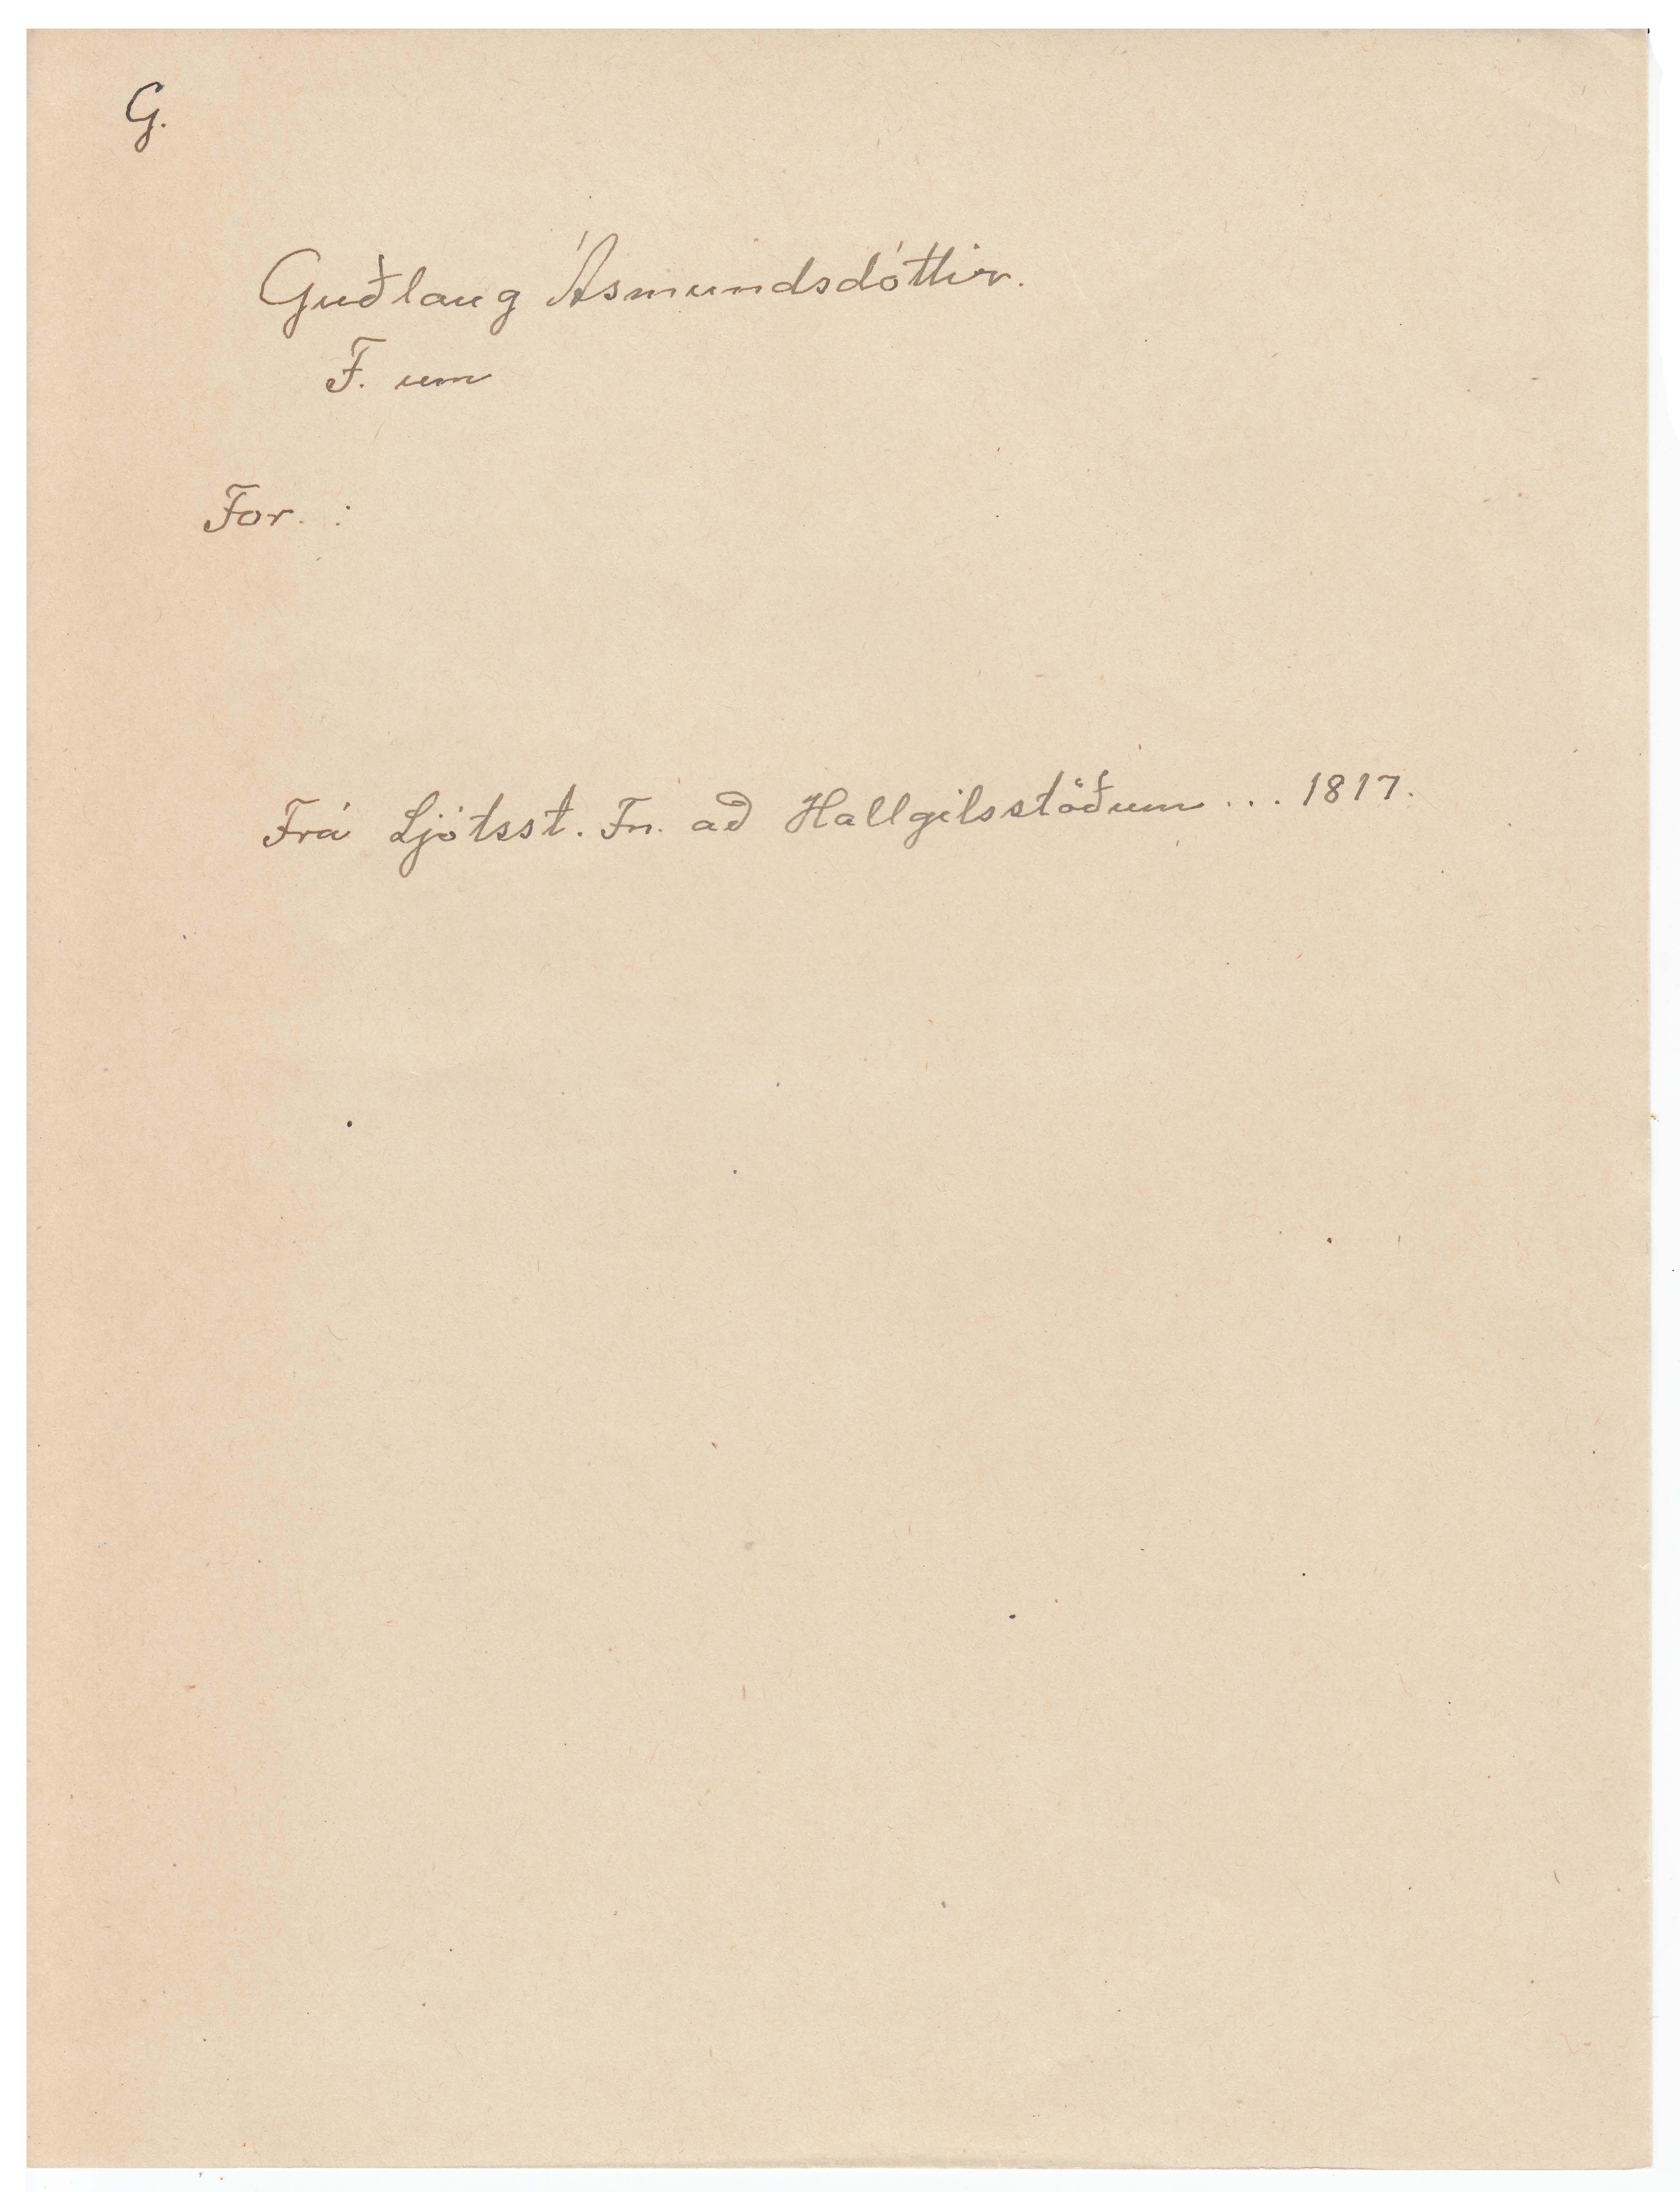 G.
Guðlaug Ásmundsdóttir.
F. um
For. :
Frá Ljótsst. Fn. að Hallgilsstöðum ... 1817.